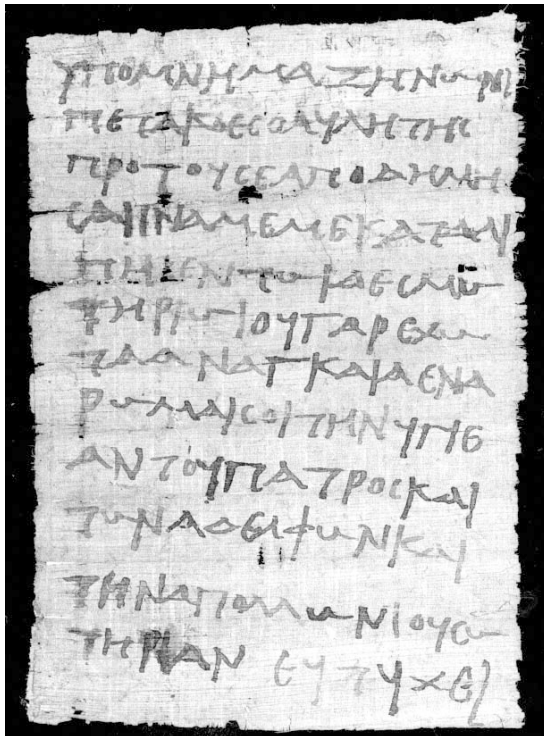 ΥΠΟΜΝΗΜΑΖΗΝΩΝΙ
ΠΕΤΑΚΟΕCΟΑΥΛΗΤΗC
ΠΡΟΤΟΥCΕΑΠΟΔΗΜΗ
CΑΙΙΝΑΜΕΜΕΚΑΤΑΛΙ
ΠΗΙΕΝΤΩΙΔΕCΜΩ
ΤΗΡΙΩΙΟΥΓΑΡΕΧΩ
ΤΑΑΝΑΓΚΑΙΑΕΝΑ
ΡΩΜΑΙCΟΙΤΗΝΥΓΙΕ
ΑΝΤΟΥΠΑΤΡΟCΚΑΙ
ΤΩΝΑΔΕΛΦΩΝΚΑΙ
ΤΗΝΑΠΟΛΛΩΝΙΟΥCΩ
ΤΗΡΙΑΝ ΕΥΤΥΧΕΙ